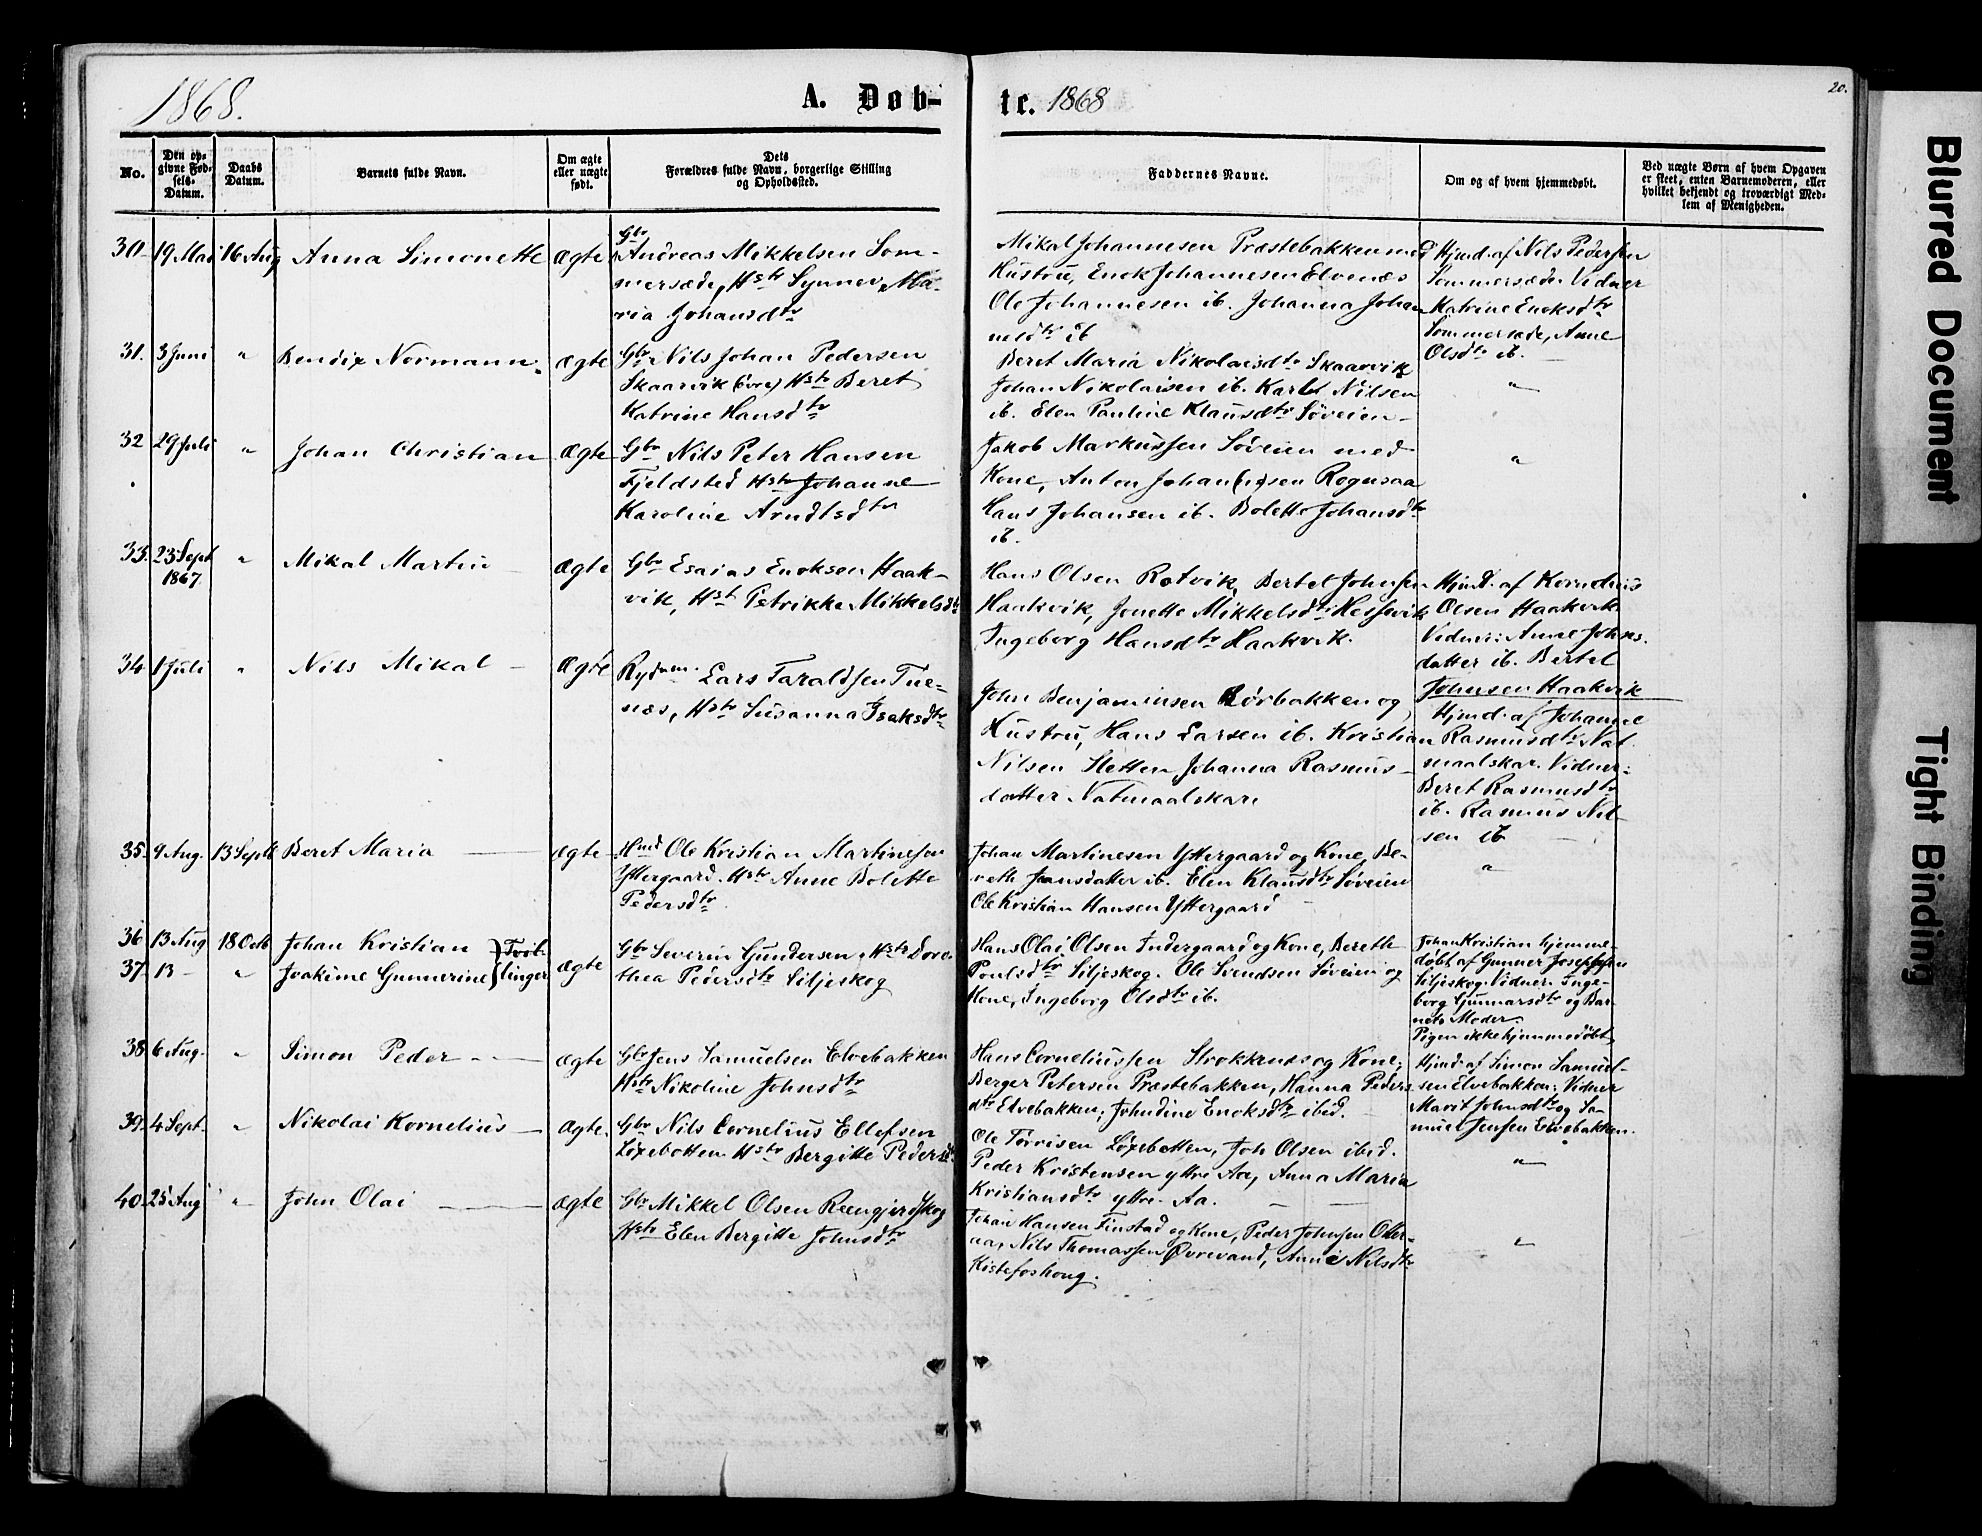 1868.
A. Døb-
te. 1868
20.
No.
Den op-
givne Fød-
sels-
Datum.
Daabs
Datum.
Barnets fulde Navn.
Om ægte
eller uægte
født.
Dets
Forældres fulde Navn, borgerlige Stilling
og Opholdssted.
Faddernes Navne.
Om og af hvem hjemmedøbt.
Ved uægte Børn af hvem Opgaven
er skeet, enten Barnemoderen, eller
hvilket bekjendt og troværdigt Med-
lem af Menigheden.
30. 19 Mai 16 Aug Anna Simonette ægte
Gbr
Andreas Mikkelsen Som-
mersæde, Hstr Synnev Ma-
ria Johansdtr
Mikal Johannesen Præstebakken med
Hustru, Enok Johannesen Elvenæs
Ole Johannesen ib. Johanna Johan
nesdtr ib
Hjmd. af Nils Pedersen
Sommersæde. Vidner
Katrine Enoksdtr
Sommersæde, Anne
Olsdtr ib. —
31. 3 Juni " Bendix Normann. ægte
Gbr. Nils Johan Pedersen
Skaarvik (øvre) Hstr Beret
Katrine Hansdtr
Beret Maria Nikolaisdtr Skaarvik
Johan Nikolaisen ib. Karl Nilsen
ib. Elen Pauline Klausdtr Søveien —
"
32 29 Juli " Johan Christian ægte
Gbr Nils Peter Hansen
Fjeldsted Hstr Johanne
Karoline Arndtsdtr
Jakob Markussen Søveien med
Kone, Anton Johan(ne)sen Rognsaa
Hans Johansen ib. Bolette Johansdtr
ib.
"
33. 23 Sept
1867. " Mikal Martin — ægte
Gbr Esaias Enoksen Haak-
vik, Hst Petrikke Mikkelsdtr
Hans Olsen Rotvik, Bertel Johnsen
Haakvik, Jonette Mikkelsdtr Hessvik
Ingeborg Hansdtr Haakvik.
Hjmd. af Kornelius
Olsen Haakvik
Vidner: Anne Johns.
datter ib. Bertel
Johnsen Haakvik
34 1 Juli " Nils Mikal — ægte
Rydnm. Lars Taraldsen Tue-
næs, Hstr Susanna Isaksdtr
John Benjaminsen Rørbakken og
Hustru, Hans Larsen ib. Kristian
Nilsen Sletten Johanna Rasmus-
datter Natmaalskar.
Hjmd. af Johanne
Rasmusdtr Nat-
maalskar. Vidner:
Beret Rasmusdtr
ib. Rasmus Nil-
sen ib —
35. 9 Aug. 13 Septb Beret Maria — ægte
Hmd Ole Kristian Martinesen
Yttergaard. Hstr Anne Bolette
Pedersdtr
Johan Martinesen Yttergaard og Kone, Be-
reth Jonsdatter ib. Elen Klausdtr Søveien
Ole Kristian Hansen Yttergaard —
"
36. 13 Aug 18 Octb Johan Kristian } Tvil-
37. 13 - " Joakime Gunnerine } linger ægte
Gbr Severin Gundersen, Hstr Doro-
thea Pedersdtr Siljeskog
Hans Olai Olsen Indergaard og Kone, Bereth
Poulsdtr Siljeskog. Ole Svendsen Søveien og
Kone, Ingeborg Olsdtr ib.
Johan Kristian hjemme-
døbt af Gunner Josephsen
Siljeskog. Vidner: Inge-
borg Gunnarsdtr og Bar-
nets Moder.
Pigen ikke hjemmedøbt
38. 6 Aug. " Simon Peder — ægte
Gbr Jens Samuelsen Elvebakken
Hstr Nikoline Johnsdtr
Hans Corneliussen Strokkenæs og Kone,
Berger Petersen Præstebakken, Hanna Peders
dtr Elvebakken; Johndine Enoksdtr ibid.
Hjmd. af Simon Samuel-
sen Elvebakken; Vidner
Marit Johnsdtr og Sa-
muel Jensen Elvebakken.
39. 4 Sept. " Nikolai Kornelius — ægte.
Gbr Nils Cornelius Ellefsen
Løxebotten Hstr Bergitte Pedersdtr
Ole Torrisen Løxebotten, Joh Olsen ibid.
Peder Kristensen yttre Aa, Anna Maria
Kristiansdtr yttre Aa. —
"
40. 25 Aug " John Olai — ægte
Gbr Mikkel Olsen Rængjerdskog
Hstr Elen Bergitte Johnsdtr
Johan Hansen Finstad og Kone, Peder Johnsen Otter-
aa, Nils Thomassen Øvrevand, Anne Nilsdtr
Kistefoshoug.
"
Blurred Document
Tight Binding